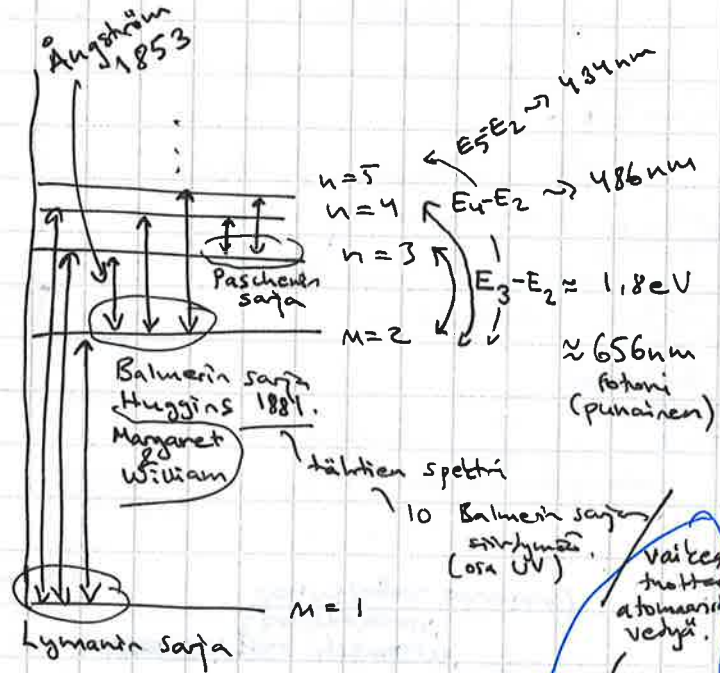 Ångström
1853
n=5
n=4
n=3
n=2
n=1
E5-E2 ~> 434nm
E4-E2 ~> 486nm
E3-E2 ≈ 1,8eV
≈ 656nm
fotoni
(punainen)
Paschenin
sarja
Balmerin sarja
Huggins 1881.
Margaret
&
William
tähtien spektri
10 Balmerin sarjan
siirtymää.
(osa UV)
vaikea
tuottaa
vetyä.
Lymanin sarja